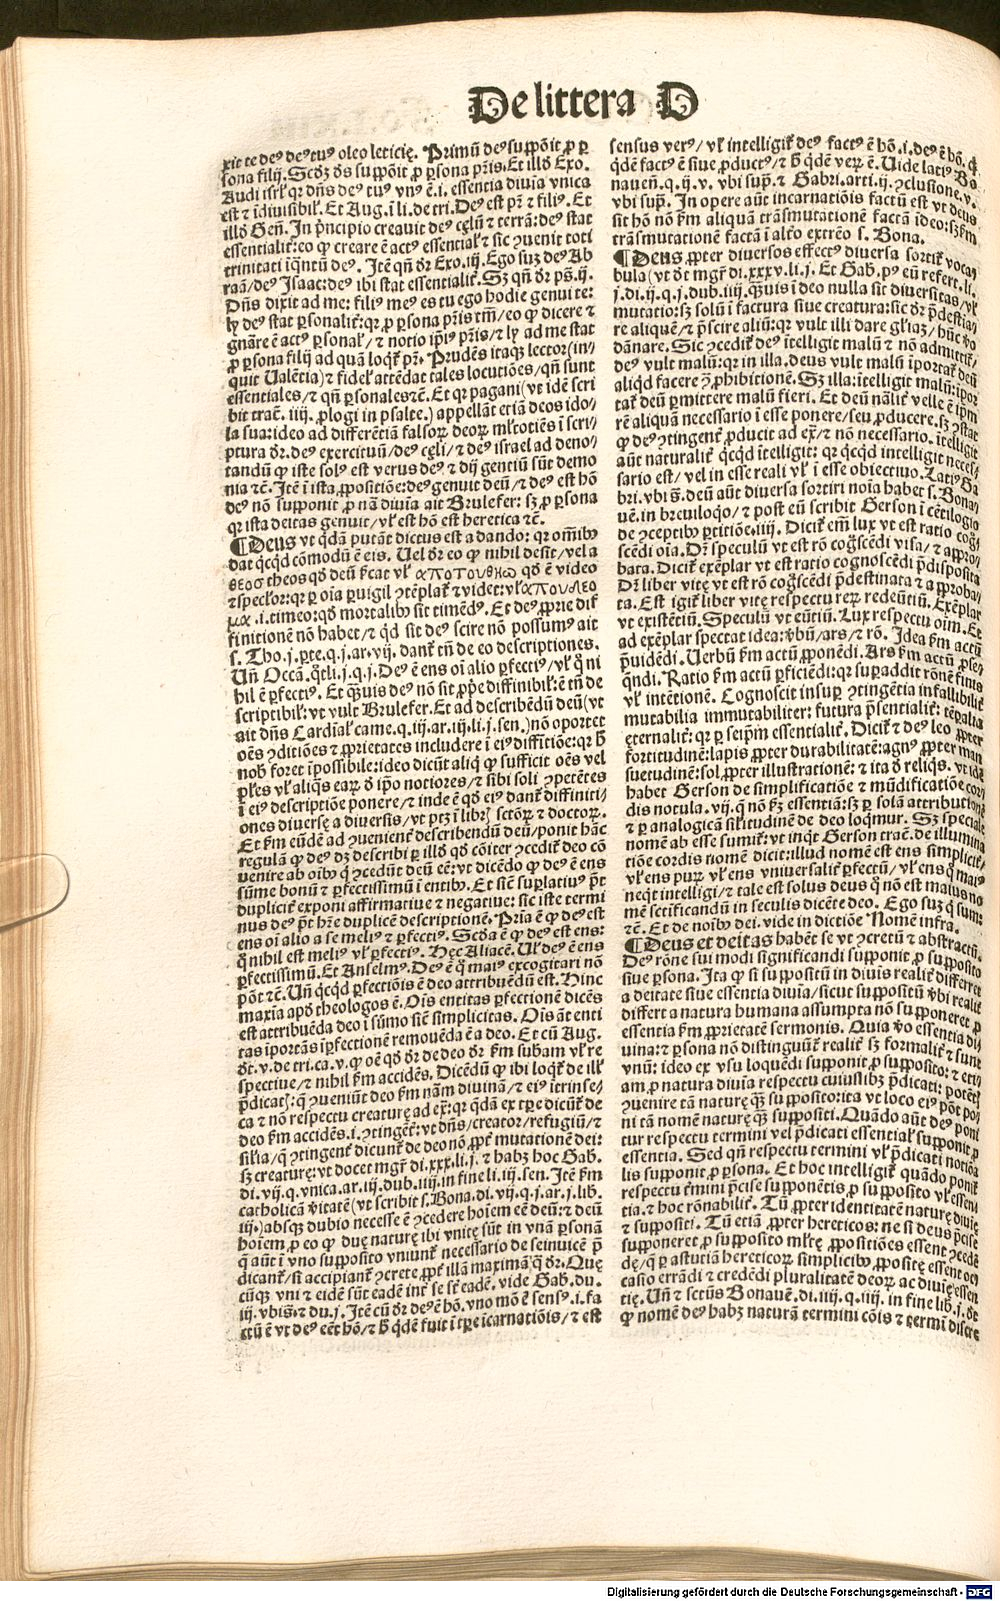 De littera D
xit te deꝰ deꝰ tuꝰ oleo leticię. Primū deꝰ suppōit ꝓ ꝑ
sona filij. Scdʒ ds suppōit ꝓ ꝑsona pr̄is. Et illd Exo.
Audi isrl' qr dn̄s deꝰ tuꝰ vnꝰ ē.i. essentia diuīa vnica
est ⁊ īdiuisibil'. Et Aug.ī li.de tri. Deꝰ est pr̄ ⁊ filiꝰ. Et
illd Gen̄. In pncipio creauit deꝰ cęlū ⁊ terrā: deꝰ stat
essentialit':eo ꝙ creare ē actꝰ essential' ⁊ sic ꝯuenit toti
trinitati īqntū deꝰ. Itē qn̄ dr Exo.iij. Ego suʒ deꝰ Ab
raā/deꝰ Isaac: deꝰ ibi stat essentialit'. Sʒ qn̄ dr ps̄.ij.
Dn̄s dixit ad me: filiꝰ meꝰ es tu ego hodie genui te:
ly deꝰ stat ꝑsonalit':qr ꝓ ꝑsona pr̄is tm̄/eo ꝙ dicere ⁊
gnāre ē actꝰ ꝑsonal'/ ⁊ notio ipīꝰ pr̄is/⁊ ly ad me stat
ꝓ ꝑsona filij ad quā loqt' pr̄. Prudēs itaqʒ lector(in/
quit Valētia)⁊ fidel' attēdat tales locutiōes/qn̄ sunt
essentiales/⁊ qn̄ ꝑsonales ⁊c̄. Et qr pagani(vt idē scri
bit trac̄. iiij. ꝓlogi in psalte.) appellāt etiā deos ido/
la sua: ideo ad differētiā falsoꝝ deoꝝ ml'tociēs ī scri/
ptura dr. deꝰ exercituū/deꝰ cęli/⁊ deꝰ israel ad deno/
tandū ꝙ iste solꝰ est verus deꝰ ⁊ dij gentiū sūt demo
nia ⁊c̄. Itē ī ista ꝓpositiōe: deꝰ genuit deū/⁊ deꝰ est hō
deꝰ nō supponit ꝓ nā diuīa ait Brulefer: sʒ ꝓ ꝑsona
qr ista deitas genuit/vl' est hō est heretica ⁊c̄.
¶Deus vt qdā putāt dictus est a dando: qr oīmbꝰ
dat qcqd cōmodū ē eis. Uel dr eo ꝙ nihil desit/vel a
θεοσ theos qd deū s̄cat vl' αποτουθηω qd ē video
⁊ spector:qr ꝑ oīa ꝑuigil ꝯtēplat' ⁊ videt: vl' απουδεο
μα .i.timeo:qd mortalibꝰ sit timēdꝰ. Et deꝰ ꝓprie dif
finitionē nō habet/⁊ qd sit deꝰ scire nō possumꝰ ait
s. Tho.j. ꝑte.q.j.ar.vij. dant' tn̄ de eo descriptiones.
Un̄ Occā. qtli.j.q.j. Deꝰ ē ens oī alio ꝑfectiꝰ/vl' q ni
hil ē ꝑfectiꝰ. Et qʒuis deꝰ nō sit ꝓpe diffinibil': ē tn̄ de
scriptibil': vt vult Brulefer. Et ad describēdū deū(vt
ait dn̄s Cardial' came.q.iij.ar.iij.li.j.sen.)nō oportet
oēs ꝯditiōes ⁊ ꝓprietates includere ī eiꝰ diffītiōe:qr h
nob foret īpossibile: ideo dicūt aliq ꝙ sufficit oēs vel
pl'es vl' aliqs eaꝝ d ip̄o notiores/⁊ sibi soli ꝯpetētes
ī eiꝰ descriptiōe ponere/⁊ inde ē qd eiꝰ dant' diffiniti/
ones diuersę a diuersis/vt ptʒ ī librʒ sctōꝝ ⁊ doctoꝝ.
Et s̄m eūdē ad ꝯuenient' describendū deū/ponit hāc
regulā ꝙ deꝰ dʒ describi ꝑ illd qd cōiter ꝯcedit' deo cō
venire ab oībꝰ q ꝯcedūt deū eē: vt dicēdo ꝙ deꝰ ē ens
sūme bonū ⁊ ꝑfectissimū ī entibꝰ. Et sic̄ suꝑlatiuꝰ pt̄
duplicit' exponi affirmatiue ⁊ negatiue: sic iste termi
nus deꝰ pt̄ hr̄e duplicē descriptionē. Pria ē ꝙ deꝰ est
ens oī alio a se meliꝰ ⁊ ꝑfectiꝰ. Scda ē ꝙ deꝰ est ens:
q nihil est meliꝰ vl' ꝑfectiꝰ. Hęc Aliacē. Ul' deꝰ ē ens
ꝑfectissimū. Et Anselmꝰ. Deꝰ ē q maiꝰ excogitari nō
pōt ⁊c̄. Un̄ qcqd ꝑfectiōis ē deo attribuēdū est. Hinc
maxia apd theologos ē. Oīs entitas ꝑfectionē dicēs
est attribuēda deo ī sūmo sic̄ simplicitas. Oīs āt enti
tas īportās īꝑfectionē remouēda ē a deo. Et cū Aug.
dt.v.de tri.ca.v.ꝙ oē qd dr de deo dr s̄m subam vl' re
spectiue/⁊ nihil s̄m accidēs. Dicēdū ꝙ ibi loqt' de ill'
pdicatʒ:q ꝯueniūt deo s̄m nām diuinā/⁊ eiꝰ ītrinse/
ca ⁊ nō respectu creaturę ad ex̄:qr qdā ex tꝑe dicūt' de
deo s̄m accidēs.i.ꝯtingēt':vt dn̄s/creator/refugiū/⁊
sil'ia/q ꝯtingent' dicunt' de deo nō ꝓpt' mutationē dei:
sʒ creaturę: vt docet mgr̄ di.xxx.li.j. ⁊ habʒ hoc Gab.
di.vij.q.vnica.ar.iij.dub.iiij.in fine li.iij.sen. Itē s̄m
catholicā vitatē(vt scribit s.Bona.di.vij.q.j.ar.j.lib.
iij.)absqʒ dubio necesse ē ꝯcedere hoīem eē deū:⁊ deū
hoīem ꝓ eo ꝙ duę naturę ibi vnitę sūt in vnā ꝑsonā
q aūt ī vno supposito vniunt' necessario de seinuicē p
dicant'/si accipiant' ꝯcrete ꝓpt' illā maximā q dr. Quę
cūqʒ vni ⁊ eidē sūt eadē int' se st̄ eadē. vide Gab.du.
iij.vbi s̄.⁊ du.j. Itē cū dr deꝰ ē hō. vno mō ē sensꝰ.i.fa
ctū ē vt deꝰ eēt hō/⁊ h qdē fuit ī tꝑe īcarnatiōis/⁊ est
sensus verꝰ/ vl' intelligit' deꝰ factꝰ ē hō.i.deꝰ ē hō. q
qdē factꝰ ē siue ꝓductꝰ/⁊ h qdē veꝝ ē. Uide latiꝰ Bo
nauen̄.q.ij.v. vbi sup̄.⁊ Gabri.arti.ij.ꝯclusione.v.
vbi sup̄. In opere aūt incarnatiōis factū est vt deus
sit hō nō s̄m aliquā trāsmutationē factā ī deo: sʒ s̄m
trāsmutationē factā ī alt'o extrēo s. Bona.
¶Deus ꝓpter diuersos effectꝰ diuersa sortit' voca/
bula(vt dt mgr̄ di.xxxv.li.j. Et Gab.pꝰ eū refert.li.
j.di.ij.q.j.dub.iiij. Qʒuis ī deo nulla sit diuersitas/vl'
mutatio: sʒ solū ī factura siue creatura: sic dr pdestia/
re aliquē/⁊ pscire aliū:qr vult illi dare gl'iaʒ/hūc vo
dānare. Sic ꝯcedit' deꝰ ītelligit malū ⁊ nō admittit'/
deꝰ vult malū: qr in illa. deus vult malū īportat' deū
aliqd facere ꝯ ꝓhibitionē. Sʒ illa: ītelligit malū: ipor
tat' deū ꝑmittere malū fieri. Et deū nālit' velle ē ip̄m
rē aliquā necessario ī esse ponere/seu ꝓducere. sʒ ꝯstat
ꝙ deꝰ ꝯtingent' ꝓducit ad ex̄/⁊ nō necessario. ītelligit
aūt naturalit' qcqd ītelligit: qr qcqd intelligit neces/
sario est/ vel in esse reali vl' ī esse obiectiuo. Latiꝰ Ga
bri. vbi s̄. deū aūt diuersa sortiri noīa habet s. Bona/
uē.in breuiloqo/⁊ post eū scribit Gerson ī cētilogio
de ꝯceptibꝰ ꝑtitiōe.iiij. Dicit' em̄ lux vt est ratio cog/
scēdi oīa. Dr̄ speculū vt est rō coḡscēdi visa/⁊ appro/
bata. Dicit' exēplar vt est ratio cognoscēdi pdisposita
Dr̄ liber vitę vt est rō coḡscēdi pdestinata ⁊ approba/
ta. Est igit' liber vitę respectu reꝝ redeūtiū. Exēplar
vt existētiū. Speculū vt eūtiū. Lux respectu oīm. Et
ad exēplar spectat idea: vbū/ars/⁊ rō. Idea s̄m actū
puidēdi. Uerbū s̄m actū ꝓponēdi. Ars s̄m actū ꝓse/
qndi. Ratio s̄m actū ꝑficiēdi:qr suꝑaddit rōnē finis
vl' intētionē. Cognoscit insuꝑ ꝯtingētia infallibilit'
mutabilia immutabiliter: futura psentialit': tēpalia
ęternalit': qr ꝑ seip̄m essentialit'. Dicit' ⁊ deꝰ leo ꝓpter
fortitudinē: lapis ꝓpter durabilitatē: agnꝰ ꝓpter man
suetudinē: sol ꝓpter illustrationē: ⁊ ita d reliqs. vt idē
habet Gerson de simplificatiōe ⁊ mūdificatiōe cor/
dis notula.vij.q nō s̄ʒ essentiā: sʒ ꝑ solā attributionē
⁊ ꝑ analogicā sil'itudinē de deo loqmur. Sʒ speciale
nomē ab esse sumit': vt inqt Gerson trac̄.de illumina
tiōe cordis nomē dicit: illud nomē est ens simplicit'/
vl' ens puꝝ vl' ens vniuersalit' ꝑfectū/vl' ens q maiꝰ
neqt intelligi/⁊ tale est solus deus q nō est maius no
mē sctificandū in seculis dicēte deo. Ego suʒ q sum:
⁊c̄. Et de noībꝰ dei. vide in dictiōe Nomē infra.
¶Deus et deitas habēt se vt ꝯcretū ⁊ abstractū.
Deꝰ rōne sui modi significandi supponit ꝓ supposito
siue ꝑsona. Ita ꝙ si suppositū in diuīs realit' differret
a deitate siue essentia diuīa/sicut suppositū vbi realit'
differt a natura humana assumpta nō supponeret ꝓ
essentia s̄m ꝓprietatē sermonis. Quia vo essentia di/
uina:⁊ ꝑsona nō distinguūt' realit' sʒ formalit' ⁊ sunt
vnū: ideo ex vsu loquēdi supponit ꝓ supposito: ⁊ eti/
am ꝓ natura diuīa respectu cuiuslibʒ pdicati: potēs
ꝯuenire tā naturę qʒ supposito: ita vt loco eiꝰ pōt po/
ni tā nomē naturę qʒ suppositi. Quādo aūt deꝰ poni
tur respectu termini vel pdicati essential' supponit ꝓ
essentia. Sed qn̄ respectu termini vl' pdicati notiōa
lis supponit ꝓ ꝑsona. Et hoc intelligit' quādo ponit'
respectu t'mini pcise supponētis ꝓ supposito vl' essen/
tia.⁊ hoc rōnabilit'. Tū ꝓpter identitatē naturę diuię
⁊ suppositi. Tū etiā ꝓpter hereticos: ne si deus pcise
supponeret ꝓ supposito ml'tę ꝓpositiōes essent ꝯcedē
dę/q ꝑ astutiā hereticoꝝ simplicibꝰ ꝓpositę essent oc/
casio errādi ⁊ credēdi pluralitatē deoꝝ ac diuię essen
tię. Un̄ ⁊ sctūs Bonauē.di.iiij.q.iiij.in fine lib.j.dt
ꝙ nomē deꝰ habʒ naturā termini cōis ⁊ termī discre
Digitalisierung gefördert durch die Deutsche Forschungsgemeinschaft - DFG